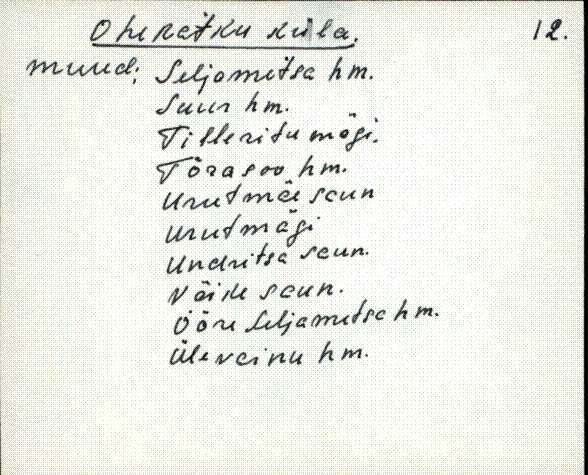 Oheratku küla. 12.
muud: Seljametsa hm.
Suur hm.
Tilleritu mägi.
Tõrasoo hm.
Urutmäe saun
Urutmägi
Undritsa saun.
Väike saun.
Ööre Seljametsa hm.
Ülevainu hm.